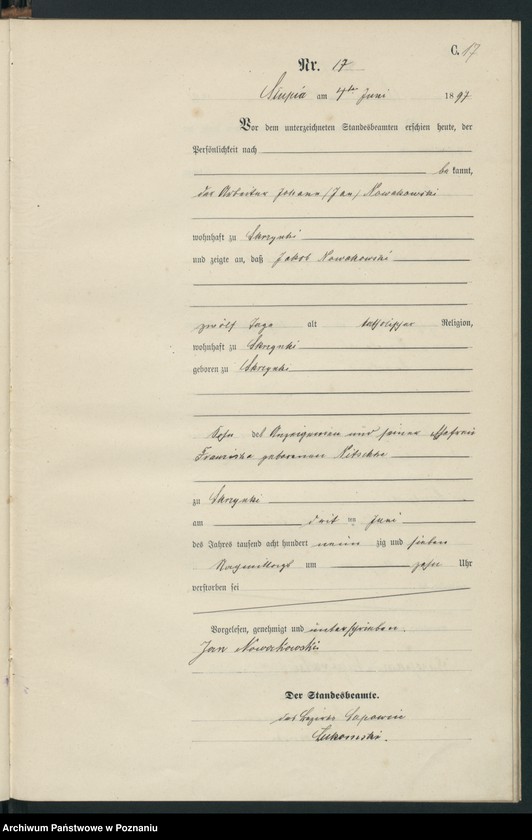 C. 17
Nr. 17
Słupia am 4ten Juni 1897
Vor dem unterzeichneten Standesbeamten erschien heute, der
Persönlichkeit nach
be kannt,
der Arbeiter Johann (Jan) Nowakowski
wohnhaft zu Skrzynki
und zeigte an, daß Jakob Nowakowski
zwölf Tage alt katholischer Religion,
wohnhaft zu Skrzynki
geboren zu Skrzynki
Sohn des Anzeigenden und seiner Ehefrau
Franziska geborenen Nitschke
zu Skrzynki
am dritten Juni
des Jahres tausend acht hundert neun zig und sieben
Nachmittags um zehn Uhr
verstorben sei
Vorgelesen, genehmigt und unterschrieben.
Jan Nowakowski
Der Standesbeamte.
des Bezirks